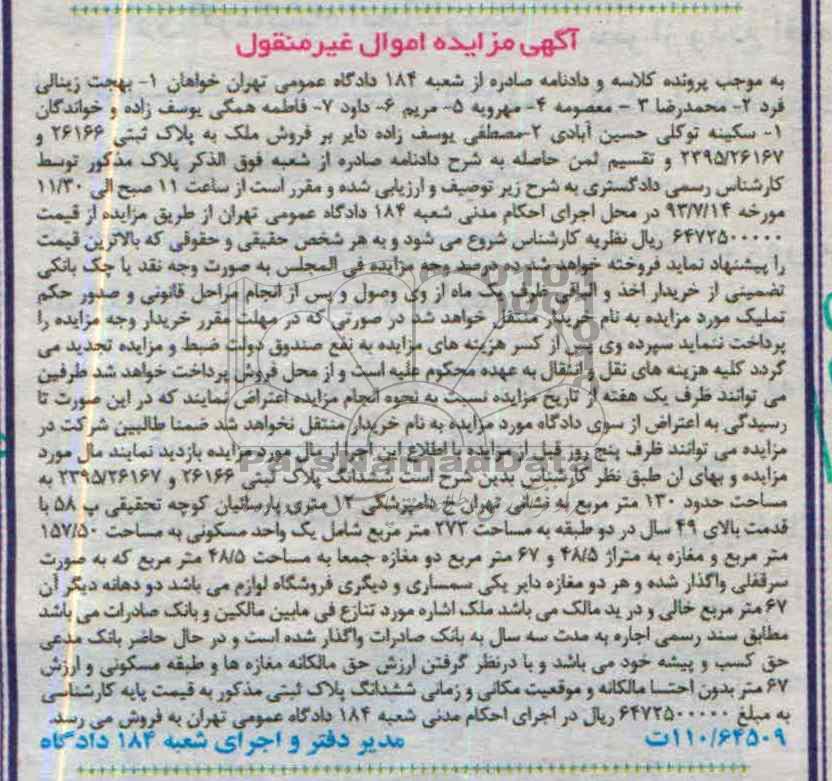 آگهی مزایده اموال غیرمنقول
به موجب پرونده کلاسه و دادنامه صادره از شعبه ۱۸۴ دادگاه عمومی تهران خواهان ۱- بهجت زینالی
فرد ۲- محمدرضا ۳ - معصومه ۴- مهرویه ۵- مریم ۶- داود ۷- فاطمه همگی یوسف زاده و خواندگان
۱- سکینه توکلی حسین آبادی ۲-مصطفی یوسف زاده دایر بر فروش ملک به پلاک ثبتی ۲۶۱۶۶ و
۲۳۹۵/۲۶۱۶۷ و تقسیم ثمن حاصله به شرح دادنامه صادره از شعبه فوق الذکر پلاک مذکور توسط
کارشناس رسمی دادگستری به شرح زیر توصیف و ارزیابی شده و مقرر است از ساعت ۱۱ صبح الی ۱۱/۳۰
مورخه ۹۳/۷/۱۴ در محل اجرای احکام مدنی شعبه ۱۸۴ دادگاه عمومی تهران از طریق مزایده از قیمت
۶۴۷۲۵۰۰۰۰۰ ریال نظریه کارشناس شروع می شود و به هر شخص حقیقی و حقوقی که بالاترین قیمت
را پیشنهاد نماید فروخته خواهد شد ده درصد وجه مزایده فی المجلس به صورت وجه نقد یا چک بانکی
تضمینی از خریدار اخذ و الباقی ظرف یک ماه از وی وصول و پس از انجام مراحل قانونی و صدور حکم
تملیک مورد مزایده به نام خریدار منتقل خواهد شد در صورتی که در مهلت مقرر خریدار وجه مزایده را
پرداخت ننماید سپرده وی پس از کسر هزینه های مزایده به نفع صندوق دولت ضبط و مزایده تجدید می
گردد کلیه هزینه های نقل و انتقال به عهده محکوم علیه است و از محل فروش پرداخت خواهد شد طرفین
می توانند ظرف یک هفته از تاریخ مزایده نسبت به نحوه انجام مزایده اعتراض نمایند که در این صورت تا
رسیدگی به اعتراض از سوی دادگاه مورد مزایده به نام خریدار منتقل نخواهد شد ضمنا طالبین شرکت در
مزایده می توانند ظرف پنج روز قبل از مزایده با اطلاع این اجرا از مال مورد مزایده بازدید نمایند مال مورد
مزایده و بهای ان طبق نظر کارشناس بدین شرح است ششدانگ پلاک ثبتی ۲۶۱۶۶ و ۲۳۹۵/۲۶۱۶۷ به
مساحت حدود ۱۳۰ متر مربع به نشانی تهران خ دامپزشکی ۱۲ متری پارسائیان کوچه تحقیقی پ ۵۸ با
قدمت بالای ۴۹ سال در دو طبقه به مساحت ۲۷۳ متر مربع شامل یک واحد مسکونی به مساحت ۱۵۷/۵۰
متر مربع و مغازه به متراژ ۴۸/۵ و ۶۷ متر مربع دو مغازه جمعا به مساحت ۴۸/۵ متر مربع که به صورت
سرقفلی واگذار شده و هر دو مغازه دایر یکی سمساری و دیگری فروشگاه لوازم می باشد دو دهانه دیگر آن
۶۷ متر مربع خالی و در ید مالک می باشد ملک اشاره مورد تنازع فی مابین مالکین و بانک صادرات می باشد
مطابق سند رسمی اجاره به مدت سه سال به بانک صادرات واگذار شده است و در حال حاضر بانک مدعی
حق کسب و پیشه خود می باشد و با درنظر گرفتن ارزش حق مالکانه مغازه ها و طبقه مسکونی و ارزش
۶۷ متر بدون احتسا مالکانه و موقعیت مکانی و زمانی ششدانگ پلاک ثبتی مذکور به قیمت پایه کارشناسی
به مبلغ ۶۴۷۲۵۰۰۰۰۰ ریال در اجرای احکام مدنی شعبه ۱۸۴ دادگاه عمومی تهران به فروش می رسد.
۱۱۰/۶۴۵۰۹ت مدیر دفتر و اجرای شعبه ۱۸۴ دادگاه
ParsNamadData